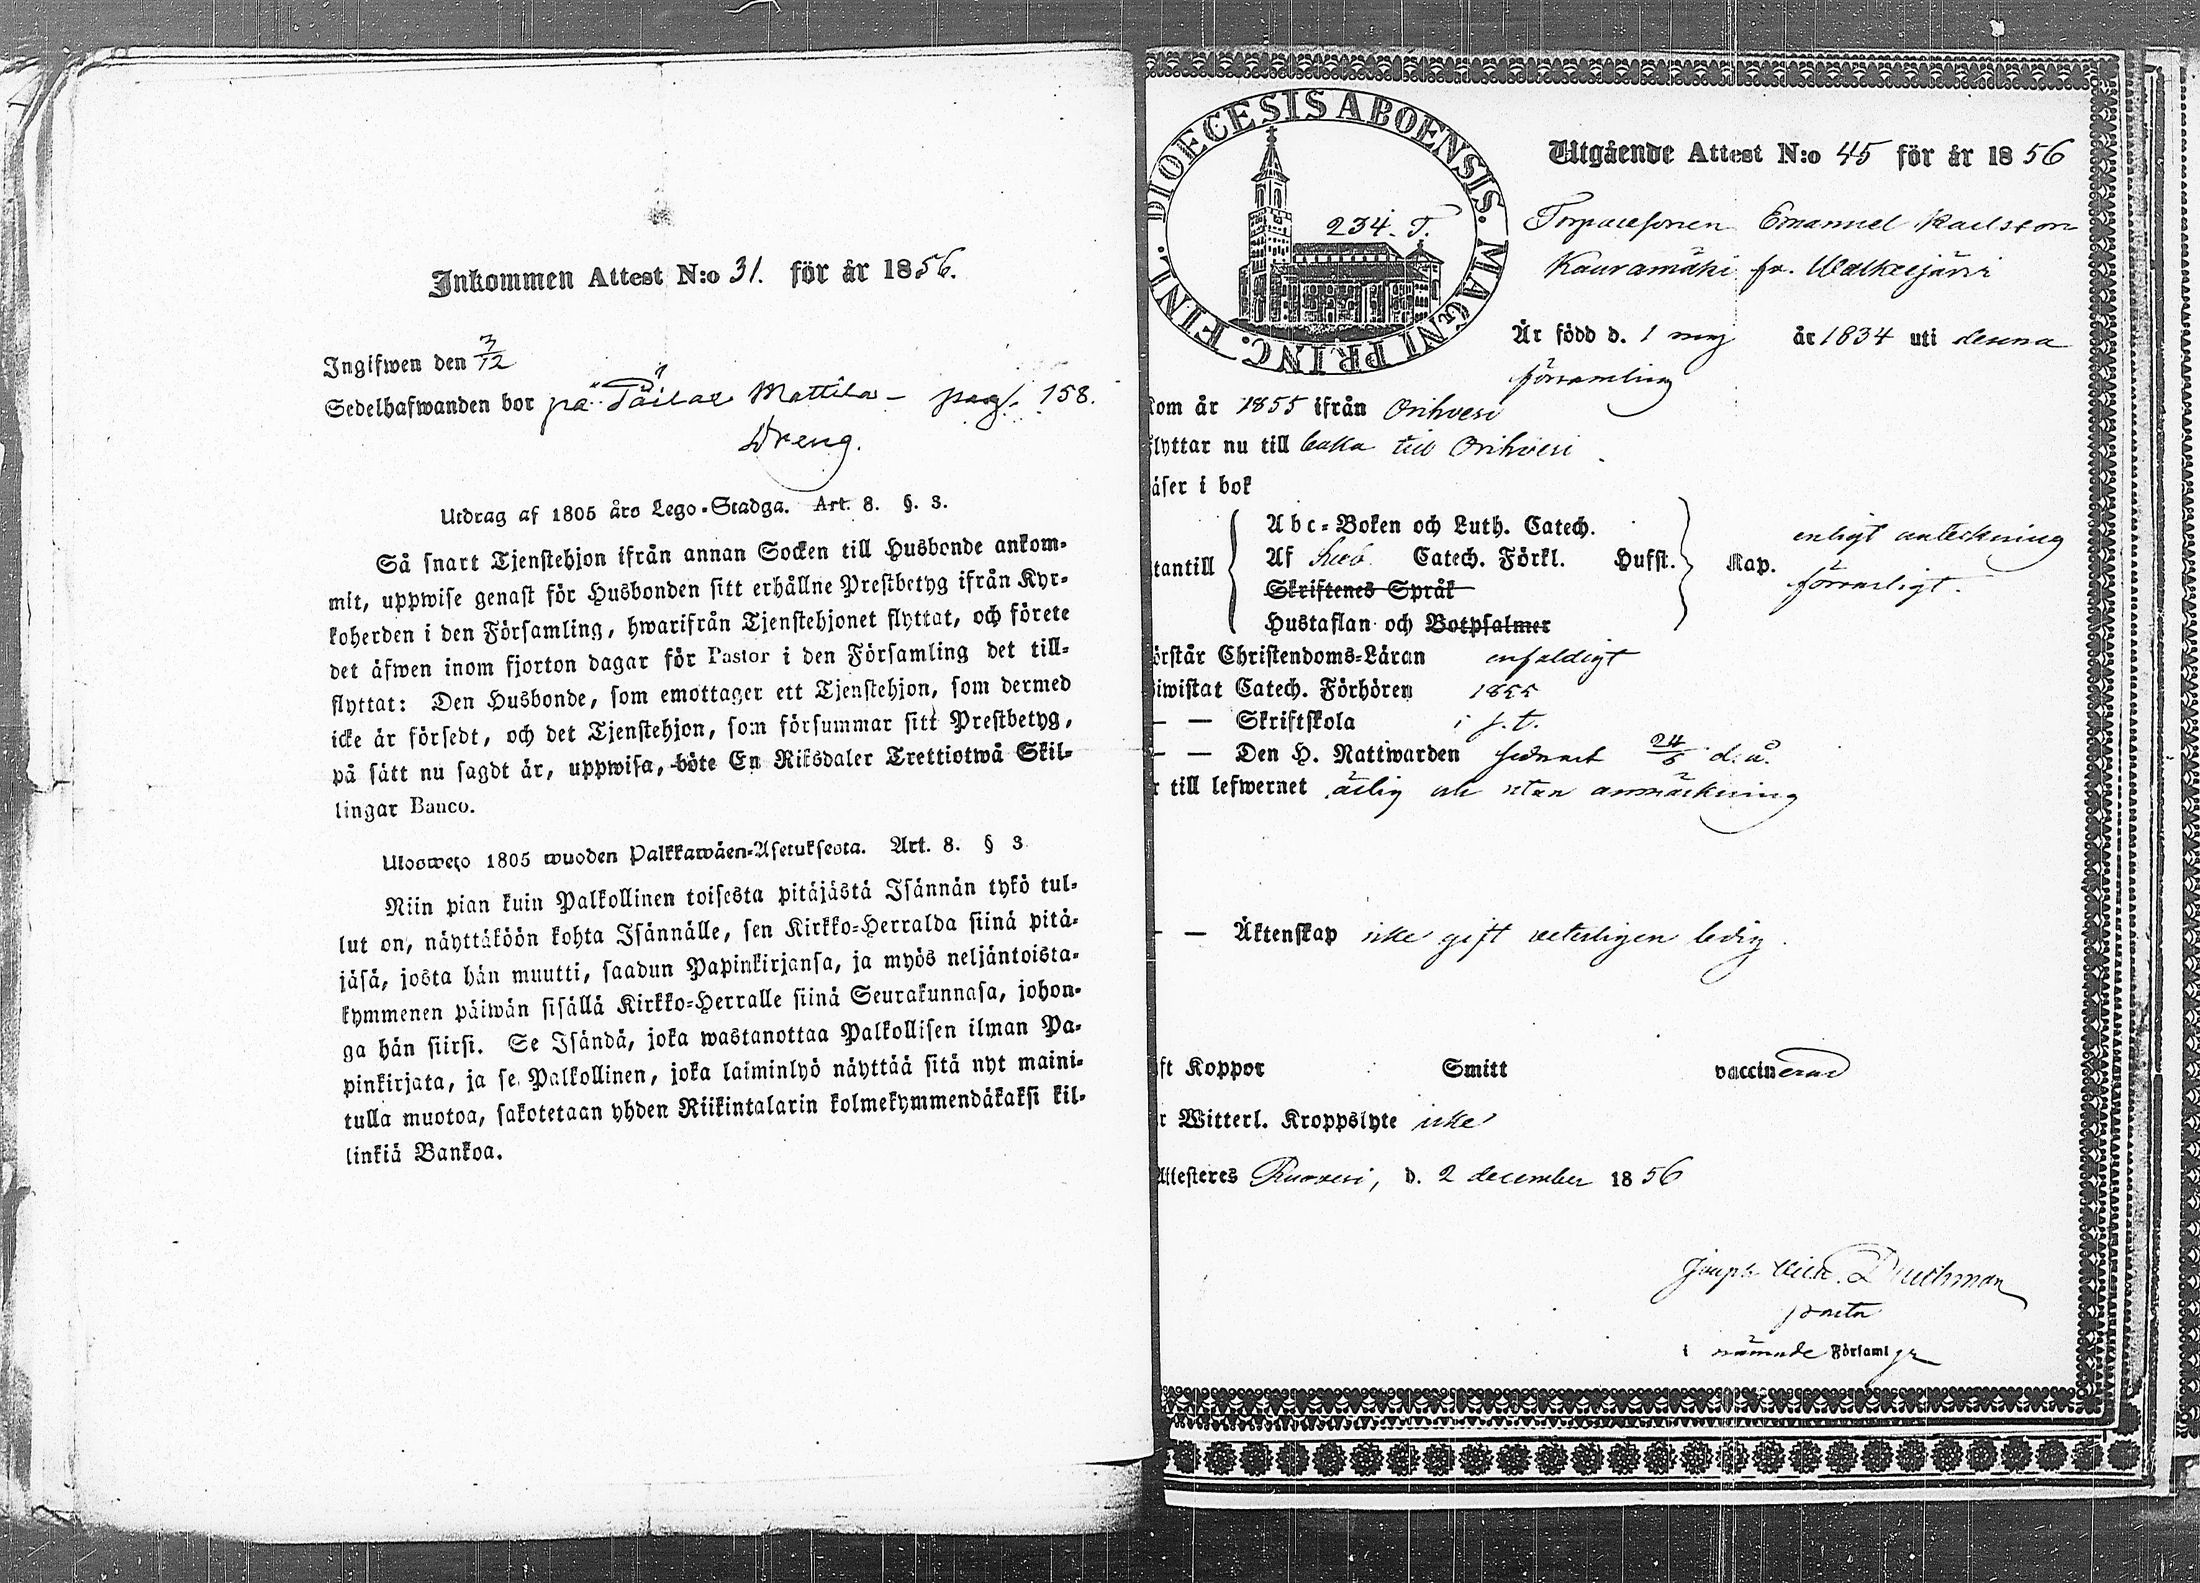 Inkommen Attest N:o 31. för år 1856.
Ingifwen den 3/12
Sedelhafwanden bor på Päilae Mattila – pag. 158.
Dreng.
Utdrag af 1805 års Lego-Stadga. Art. 8. §. 3.
Så snart Tjenstehjon ifrån annan Socken till Husbonde ankom-
mit, uppwise genast för Husbonden sitt erhållne Prestbetyg ifrån Kyr-
koherden i den Församling, hwarifrån Tjenstehjonet flyttat, och förete
det äfwen inom fjorton dagar för Pastor i den Församling det till-
flyttat: Den Husbonde, som emottager ett Tjenstehjon, som dermed
icke är försedt, och det Tjenstehjon, som försummar sitt Prestbetyg,
på sätt nu sagdt är, uppwisa, böte En Riksdaler Trettiotwå Skil-
lingar Banco.
Ulosweto 1805 wuoden Palkkawäen-Asetuksesta. Art. 8. § 3
Niin pian kuin Palkollinen toisesta pitäjästä Isännän tykö tul-
lut on, näyttäköön kohta Isännälle, sen Kirkko-Herralda siinä pitä-
jäsä, josta hän muutti, saadun Papinkirjansa, ja myös neljäntoista-
kymmenen päiwän sisällä Kirkko-Herralle siinä Seurakunnasa, johon-
ga hän siirsi. Se Isändä, joka wastanottaa Palkollisen ilman Pa-
pinkirjata, ja se Palkollinen, joka laiminlyö näyttää sitä nyt maini-
tulla muotoa, sakotetaan yhden Riikintalarin kolmekymmendäkaksi kil-
linkiä Bankoa.
DIOECESIS ABOENSIS. MAGNI PRINC. FINL.
234. T.
Utgående Attest N:o 45 för år 1856
Torparesonen Emanuel Karlsson
Kauramäki fr. Walkeejärvi
Är född d. 1 maj år 1834 uti denna
församling
kom år 1855 ifrån Orihvesi
flyttar nu till baka till Orihvesi
äser i bok
Abc-Boken och Luth. Catech.
tantill Af Catech. Förkl. Husst. Kap. enligt anteckning
Skriftenes Språk försvarligt.
Hustaflan och Botpsalmer
örstår Christendoms-Läran enfaldigt
iwistat Catech. Förhören 1855
— — Skriftskola i s. t.
— — Den H. Nattwarden sednast 24/8 d. å.
r till lefwernet ärlig och utan anmärkning
— — Äktenskap icke gift veterligen ledig.
ft Koppor Smitt vaccinerad
r Witterl. Kroppslyte icke
Attesteres Ruovesi, d. 2 december 1856
Joseph Wilh. Durchman
pastor
i nämnde Församlg